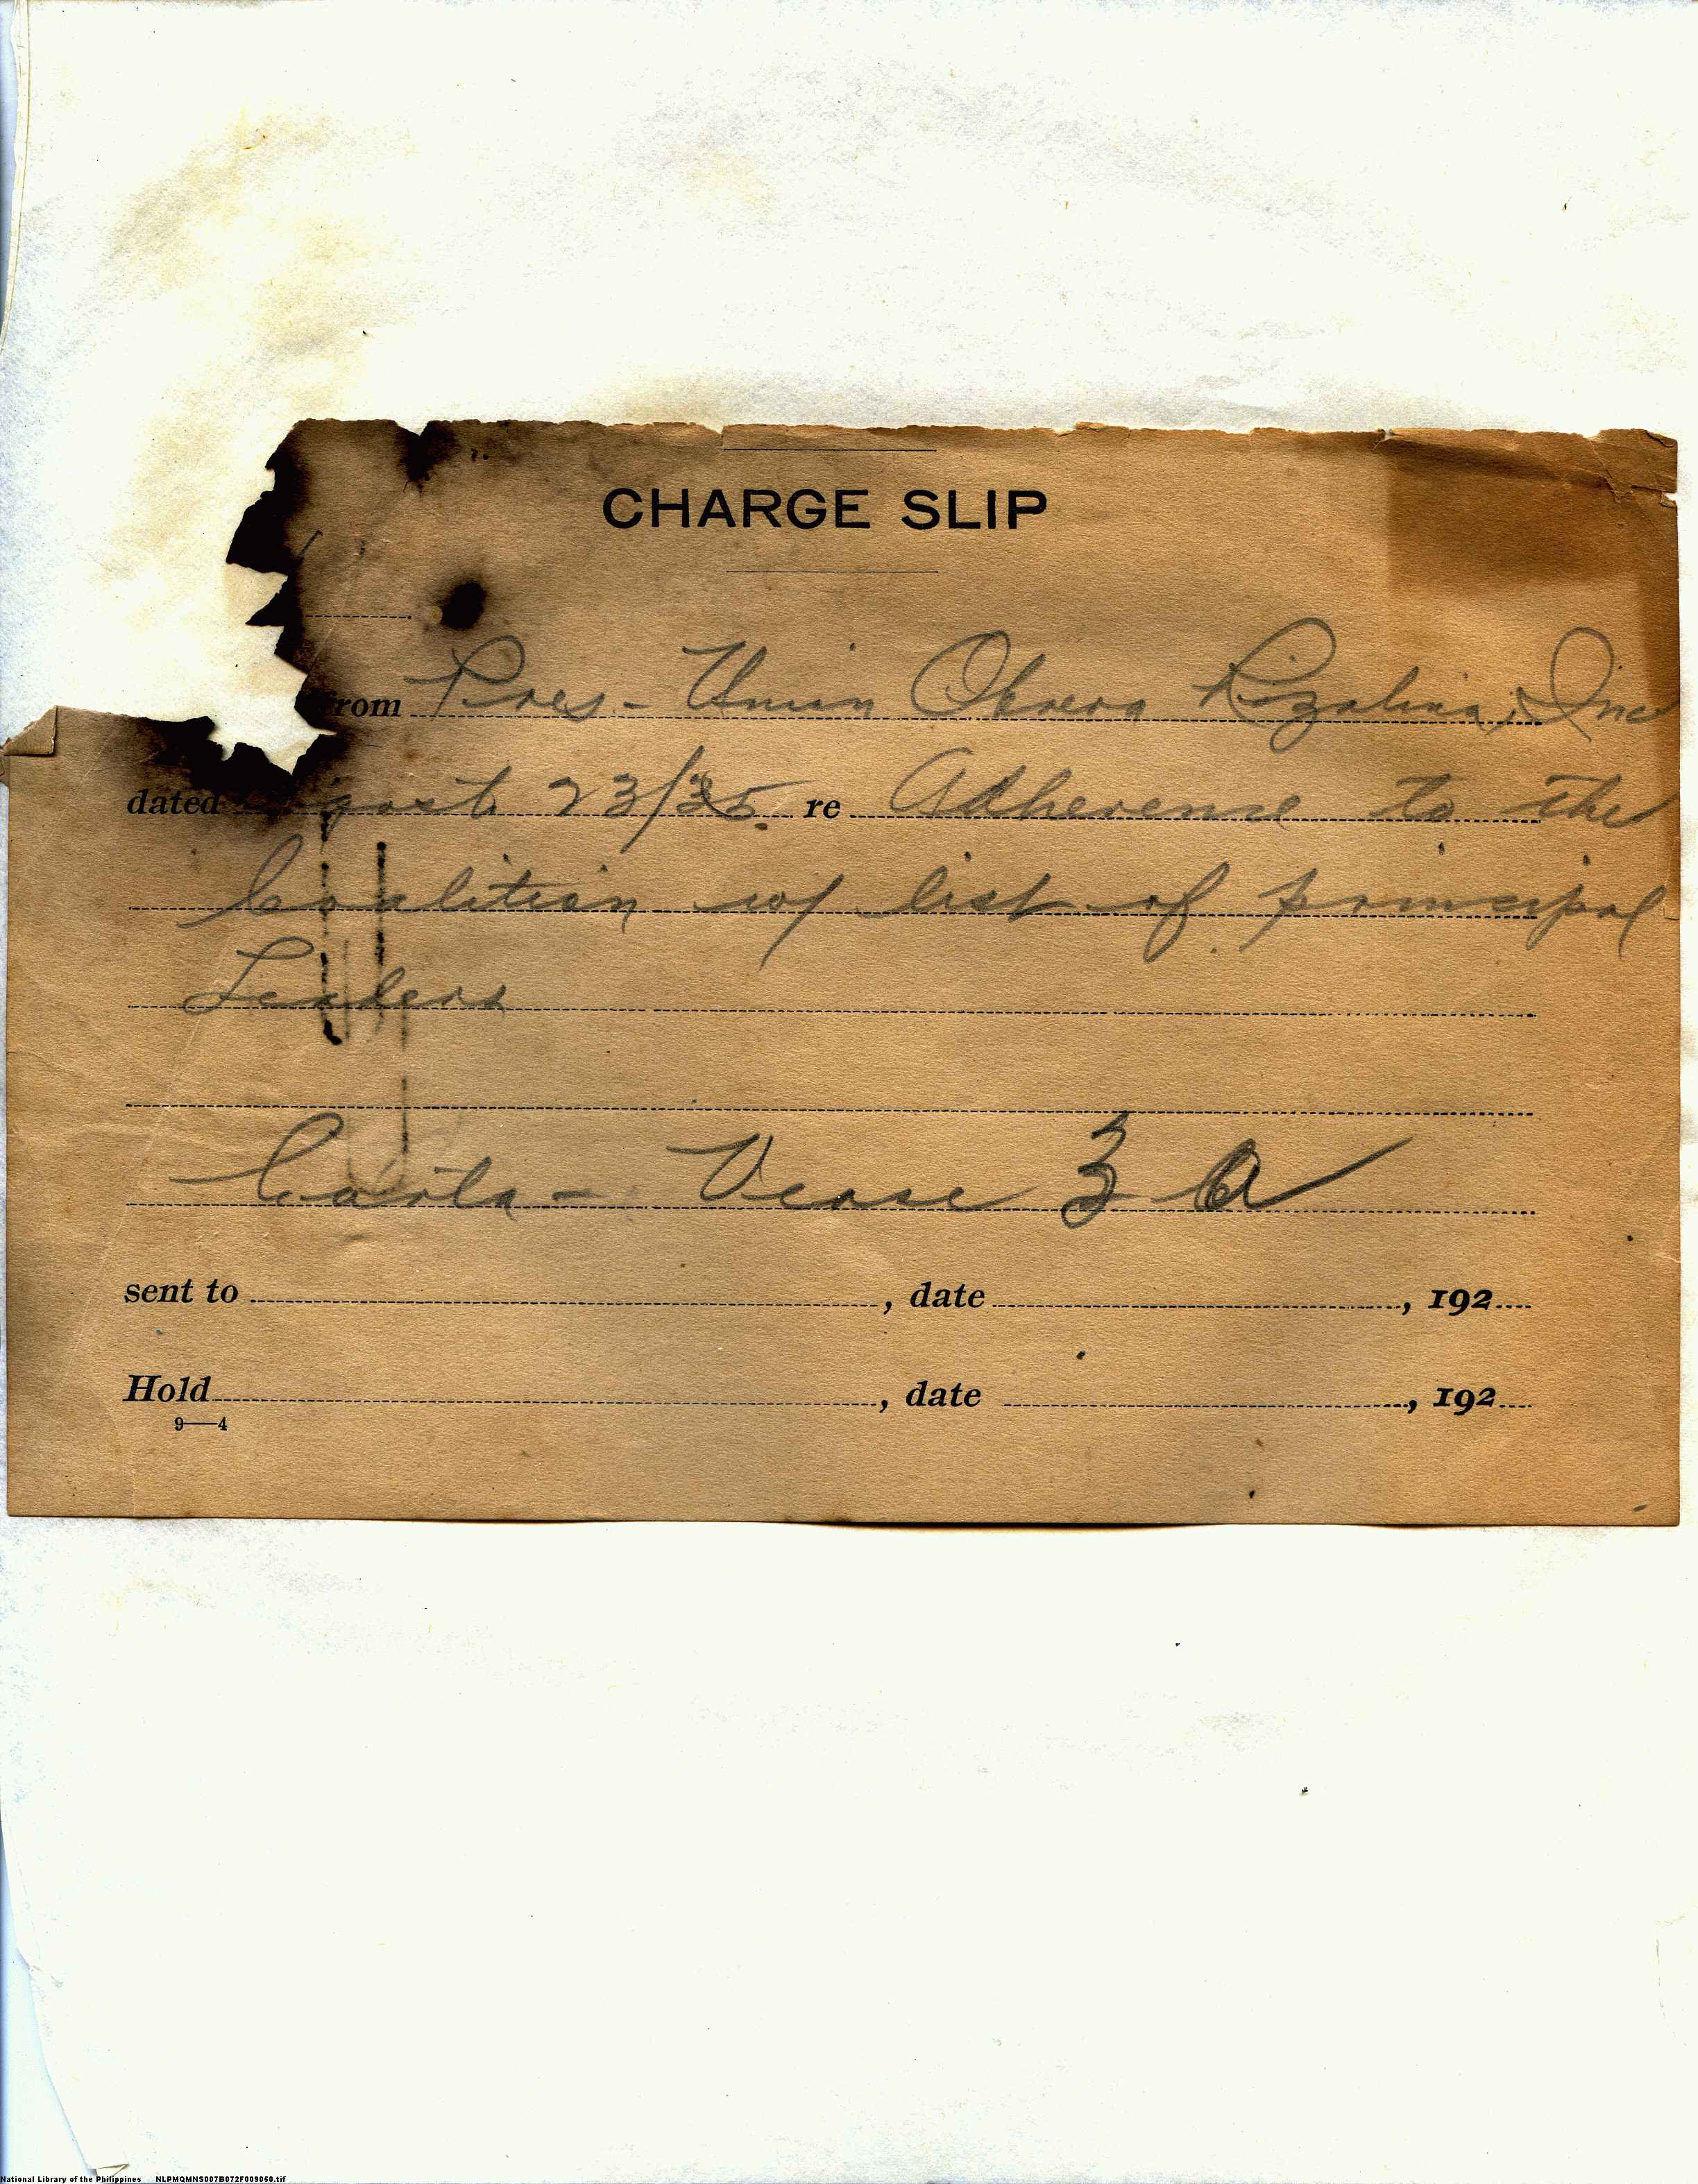 CHARGE SLIP
from Pres - Union Obrera Rizalina, Inc
dated August 23/35. re Adherence to the
Coalition w/ list of principal
Leaders
Carta - Vease 3 a
sent to , date , 192
Hold , date , 192
9—4
National Library of the Philippines NLPMQMNS007B072F009060.tif